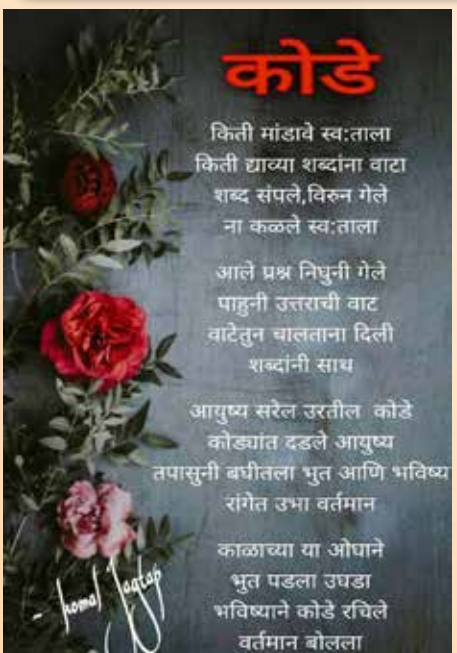 कोडे
किती मांडावे स्व:ताला
किती द्याव्या शब्दांना वाटा
शब्द संपले,विरुन गेले
ना कळले स्व:ताला
आले प्रश्न निघुनी गेले
पाहुनी उत्तराची वाट
वाटेतुन चालताना दिली
शब्दांनी साथ
आयुष्य सरेल उरतील कोडे
कोड्यांत दडले आयुष्य
तपासुनी बघीतला भुत आणि भविष्य
रांगेत उभा वर्तमान
काळाच्या या ओघाने
भुत पडला उघडा
भविष्याने कोडे रचिले
वर्तमान बोलला
Jagtap